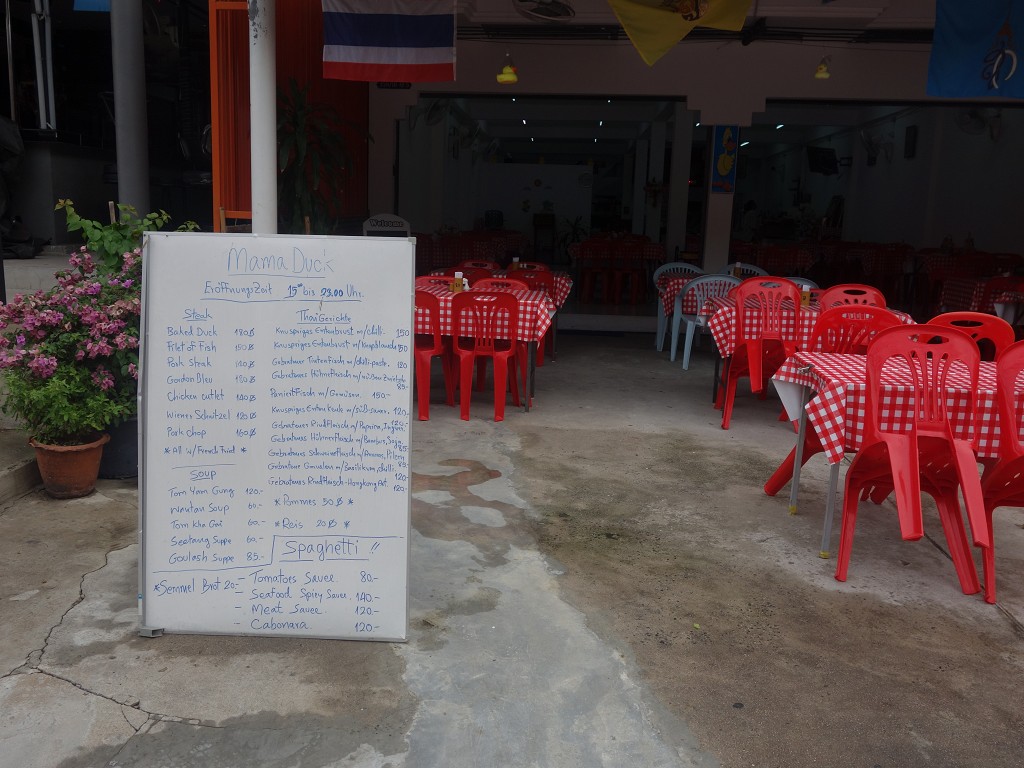 Welcome
Mama Duck
Eröffnungszeit 15 bis 23.00 Uhr.
Steak
Baked Duck 180฿
Filet of Fish 150฿
Pork Steak 180฿
Gordon Bleu 180฿
Chicken cutlet 140฿
Wiener Schnitzel 180฿
Pork Chop 160฿
* All w/ French Fried *
Soup
Tom Yam Gung 120.-
Wautan Soup 60.-
Tom Kha Gai 60.-
Seetang Suppe 60.-
Goulash Suppe 85.-
*Semmel Brot 20.-
Thai Gerichte
Knuspriges Entenbrust m/chilli. 150
Knuspriges Entenbrust m/ 150
Gebratener Tintenfisch m/chilli-paste. 120
Gebratenes Hühnerfleisch m/
85.-
Paniert Fisch m/Gemüsen. 150.-
Knuspriges m/süß-sauer. 120.-
Gebratenes Rindfleisch m/Paprica, 120.-
Gebratenes Hühnerfleisch m/Bambus, Soya
85.-
Gebratenes Schweinefleisch m/Ananas, Pilzen
85.-
Gebratener m/Basilikum chilli.
120.-
Gebratenes Rindfleisch-Hongkong Art. 120.-
* Pommes 50฿ *
* Reis 20฿ *
Spaghetti !!
- Tomatoes Sauce. 80.-
- Seafood Spicy Sauce. 140.-
- Meat Sauce. 120.-
- Cabonara. 120.-